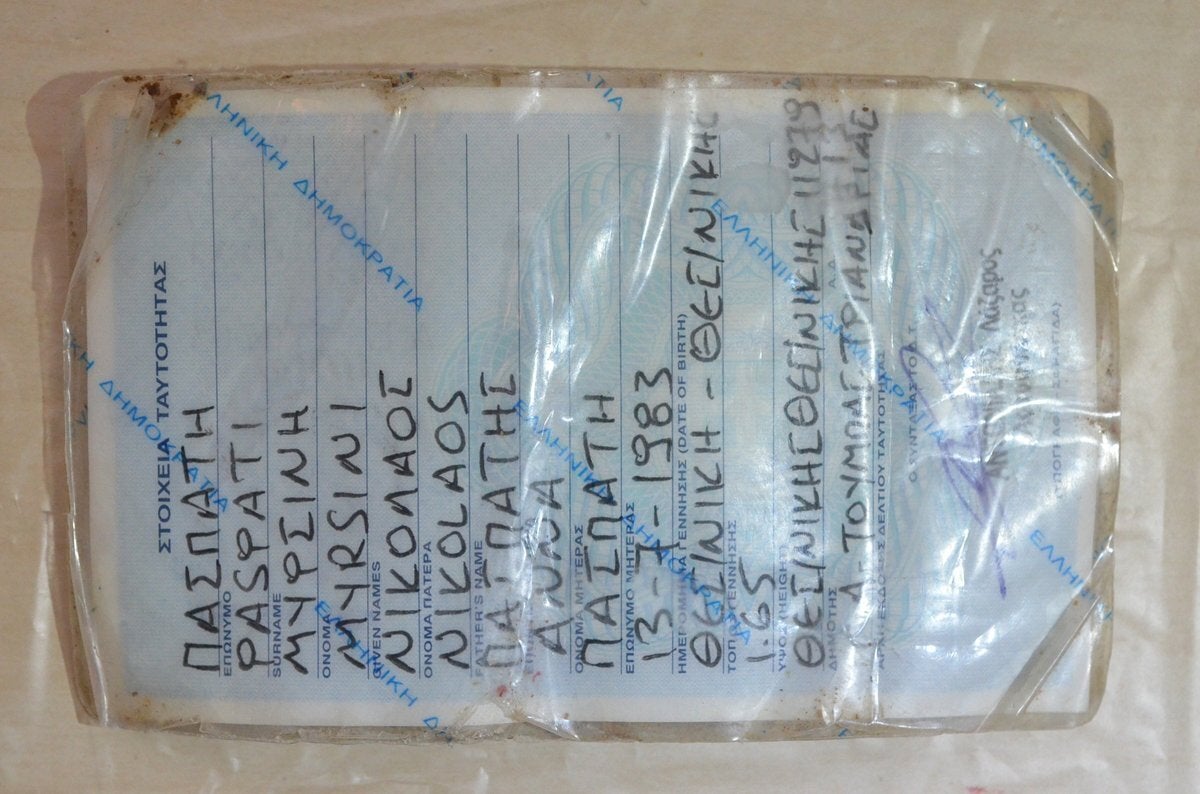 ΣΤΟΙΧΕΙΑ ΤΑΥΤΟΤΗΤΑΣ
ΠΑΣΠΑΤΗ
ΕΠΩΝΥΜΟ
PASPATI
SURNAME
ΜΥΡΣΙΝΗ
ΟΝΟΜΑ
MYRSINI
GIVEN NAMES
ΝΙΚΟΛΑΟΣ
ΟΝΟΜΑ ΠΑΤΕΡΑ
NIKOLAOS
FATHER'S NAME
ΠΑΣΠΑΤΗΣ
ΑΝΝΑ
ΟΝΟΜΑ ΜΗΤΕΡΑΣ
ΠΑΣΠΑΤΗ
ΕΠΩΝΥΜΟ ΜΗΤΕΡΑΣ
13-7-1983
ΗΜΕΡΟΜΗΝΙΑ ΓΕΝΝΗΣΗΣ (DATE OF BIRTH)
ΘΕΣ/ΝΙΚΗ - ΘΕΣ/ΝΙΚΗΣ
ΤΟΠΟΣ ΓΕΝΝΗΣΗΣ
1.65
ΥΨΟΣ (HEIGHT)
ΘΕΣ/ΝΙΚΗΣ ΘΕΣ/ΝΙΚΗΣ
ΔΗΜΟΤΗΣ
Α-ΤΟΥΜΠΑΣ-ΤΡΙΑΝΔΡΙΑΣ
ΔΕΛΤΙΟΥ ΤΑΥΤΟΤΗΤΑΣ
Ο ΣΥΝΤΑΞΑΣ
Λάζαρος
ΕΛΛΗΝΙΚΗ ΔΗΜΟΚΡΑΤΙΑ